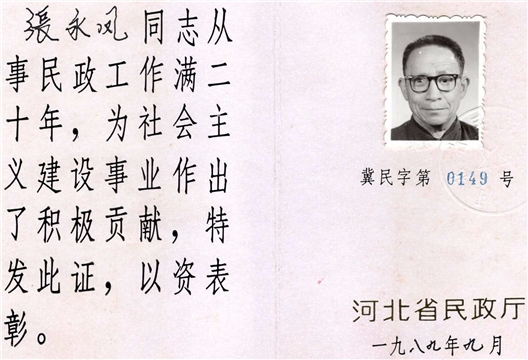 張永凤同志从
事民政工作满二
十年，为社会主
义建设事业作出
了积极贡献，特
发此证，以资表
彰。
冀民字第 0149 号
河北省民政厅
一九八九年九月